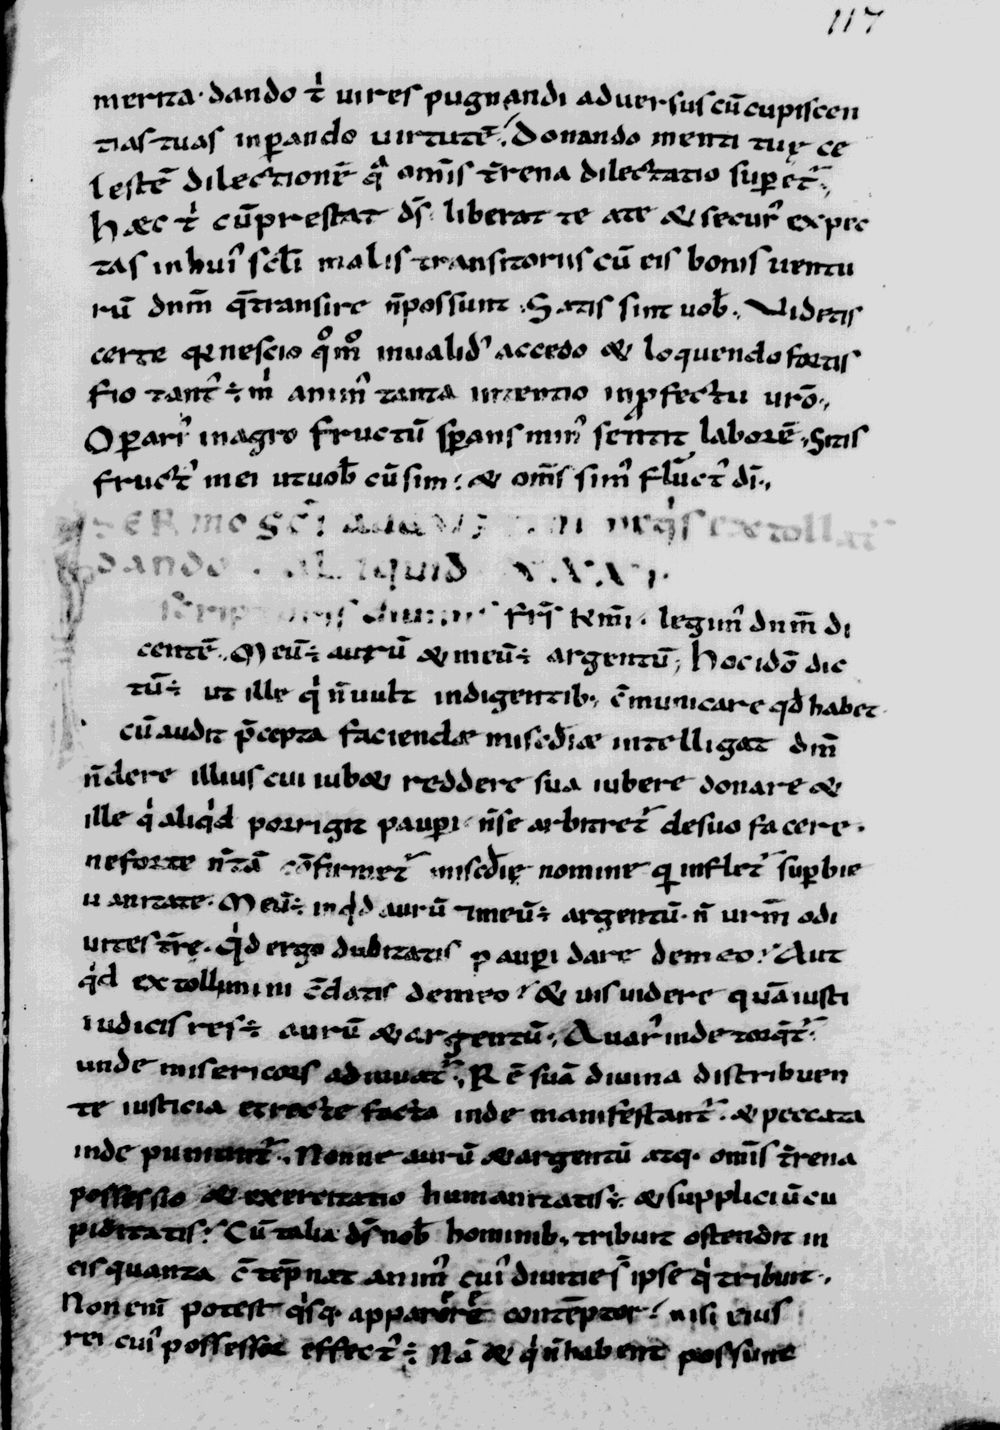 117
merita· dando t͛ uires pugnandi aduersus cū cupiscen
tias tuas inꝑando uirtutē· Donando menti tuę ce
lestē dilectionē q̄ om̄s t̄rena dilectatio suꝑet᷑·,
hæc t͛ cū prestat d̄s· liberat te a te & secur᷒ expec
tas in hui᷒ sc̄li malis transitoriis cū eis bonis uentu
rū dn̄m q̄ transire n̄ possunt· Satis sint uob̄·, Videtis
certe q̄ nescio qͦmͦ inualid᷒ accedo & loquendo fortis
fio tant᷒ ÷ m͛ anim᷒ tanta intentio in ꝓfectu ur̄o·,
Oꝑari᷒ in agro fructū sꝑans min᷒ sentit laborē·, Sitis
fruct᷒ mei ut uob̄ cū sim· & om̄s sim᷒ fruct᷒ dī·,
SERmo sc̄i neq͛s extollat᷑
dando aliquid
fr̄s k̄mi· legim᷒ dn̄m di
centē·, Meū ÷ aurū & meū ÷ argentū; hoc idō dic
tū ÷ ut ille q͛ n̄ uult indigentib·, c̄municare qd̄ habet
cū audit p̄cepta faciendæ mis̄cdiæ intelligat dm̄
n̄ dere illius cui iub& reddere sua iubere donare &
ille q͛ aliq͛d porrigit pauꝑi· n̄ se arbitret᷑ de suo facere·
ne forte n̄ tā cōfirmet᷑ mis̄cdię nomine q̄ inflet᷑ suꝑbie
uanitate· Meū ÷ inq͛d aurū ⁊ meū ÷ argentū· n̄ urm̄ o di
uites t̄re· Q͛d ergo dubitatis pauꝑi dare de meo? Aut
q͛d extollimini c̄ datis de meo? & uis uidere quā iusti
iudicis res ÷ aurū & argentū·, Auar᷒ inde torq̄t᷑·
unde misericors adiuuat᷑·, Rē suā diuina distribuen
te iusticia et recte facta inde manifestant᷑· & peccata
inde puniunt᷑·, Nonne aurū & argentū atq· om̄is t̄rena
possessio & exercitatio humanitatis ÷ & suppliciū cu
piditatis? Cū talia d̄s nob̄ hominib·, tribuit ostendit in
eis quanta c̄tēpnat anim᷒ cui᷒ diuitie s̄ ipse q͛ tribuit·,
Non eni͛ potest q͛sq· apparere contēptor? nisi eius
rei cui᷒ possessor effect᷒ ÷ Nā & q͛ n̄ habent possunt